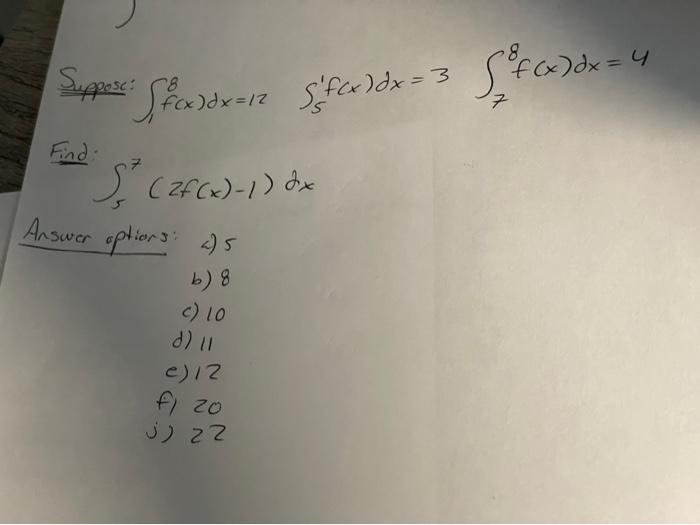 Suppose: ∫₁⁸ f(x)dx=12 ∫₅¹ f(x)dx=3 ∫₇⁸ f(x)dx=4
Find:
∫₅⁷ (2f(x)-1) dx
Answer options: a) 5
b) 8
c) 10
d) 11
e) 12
f) 20
j) 22